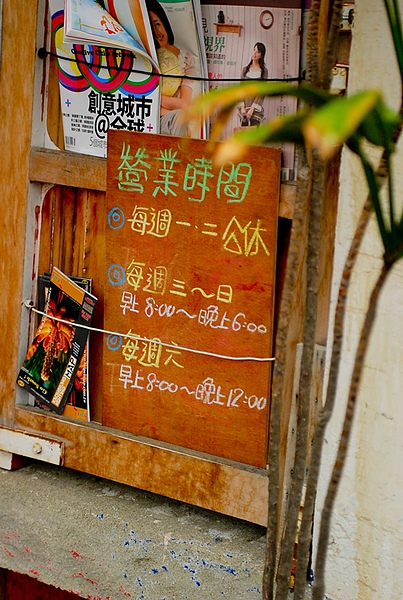 視界
創意城市
@全球
營業時間
每週一.二公休
每週三～日
早上8:00～晚上6:00
每週六
早上8:00～晚上12:00